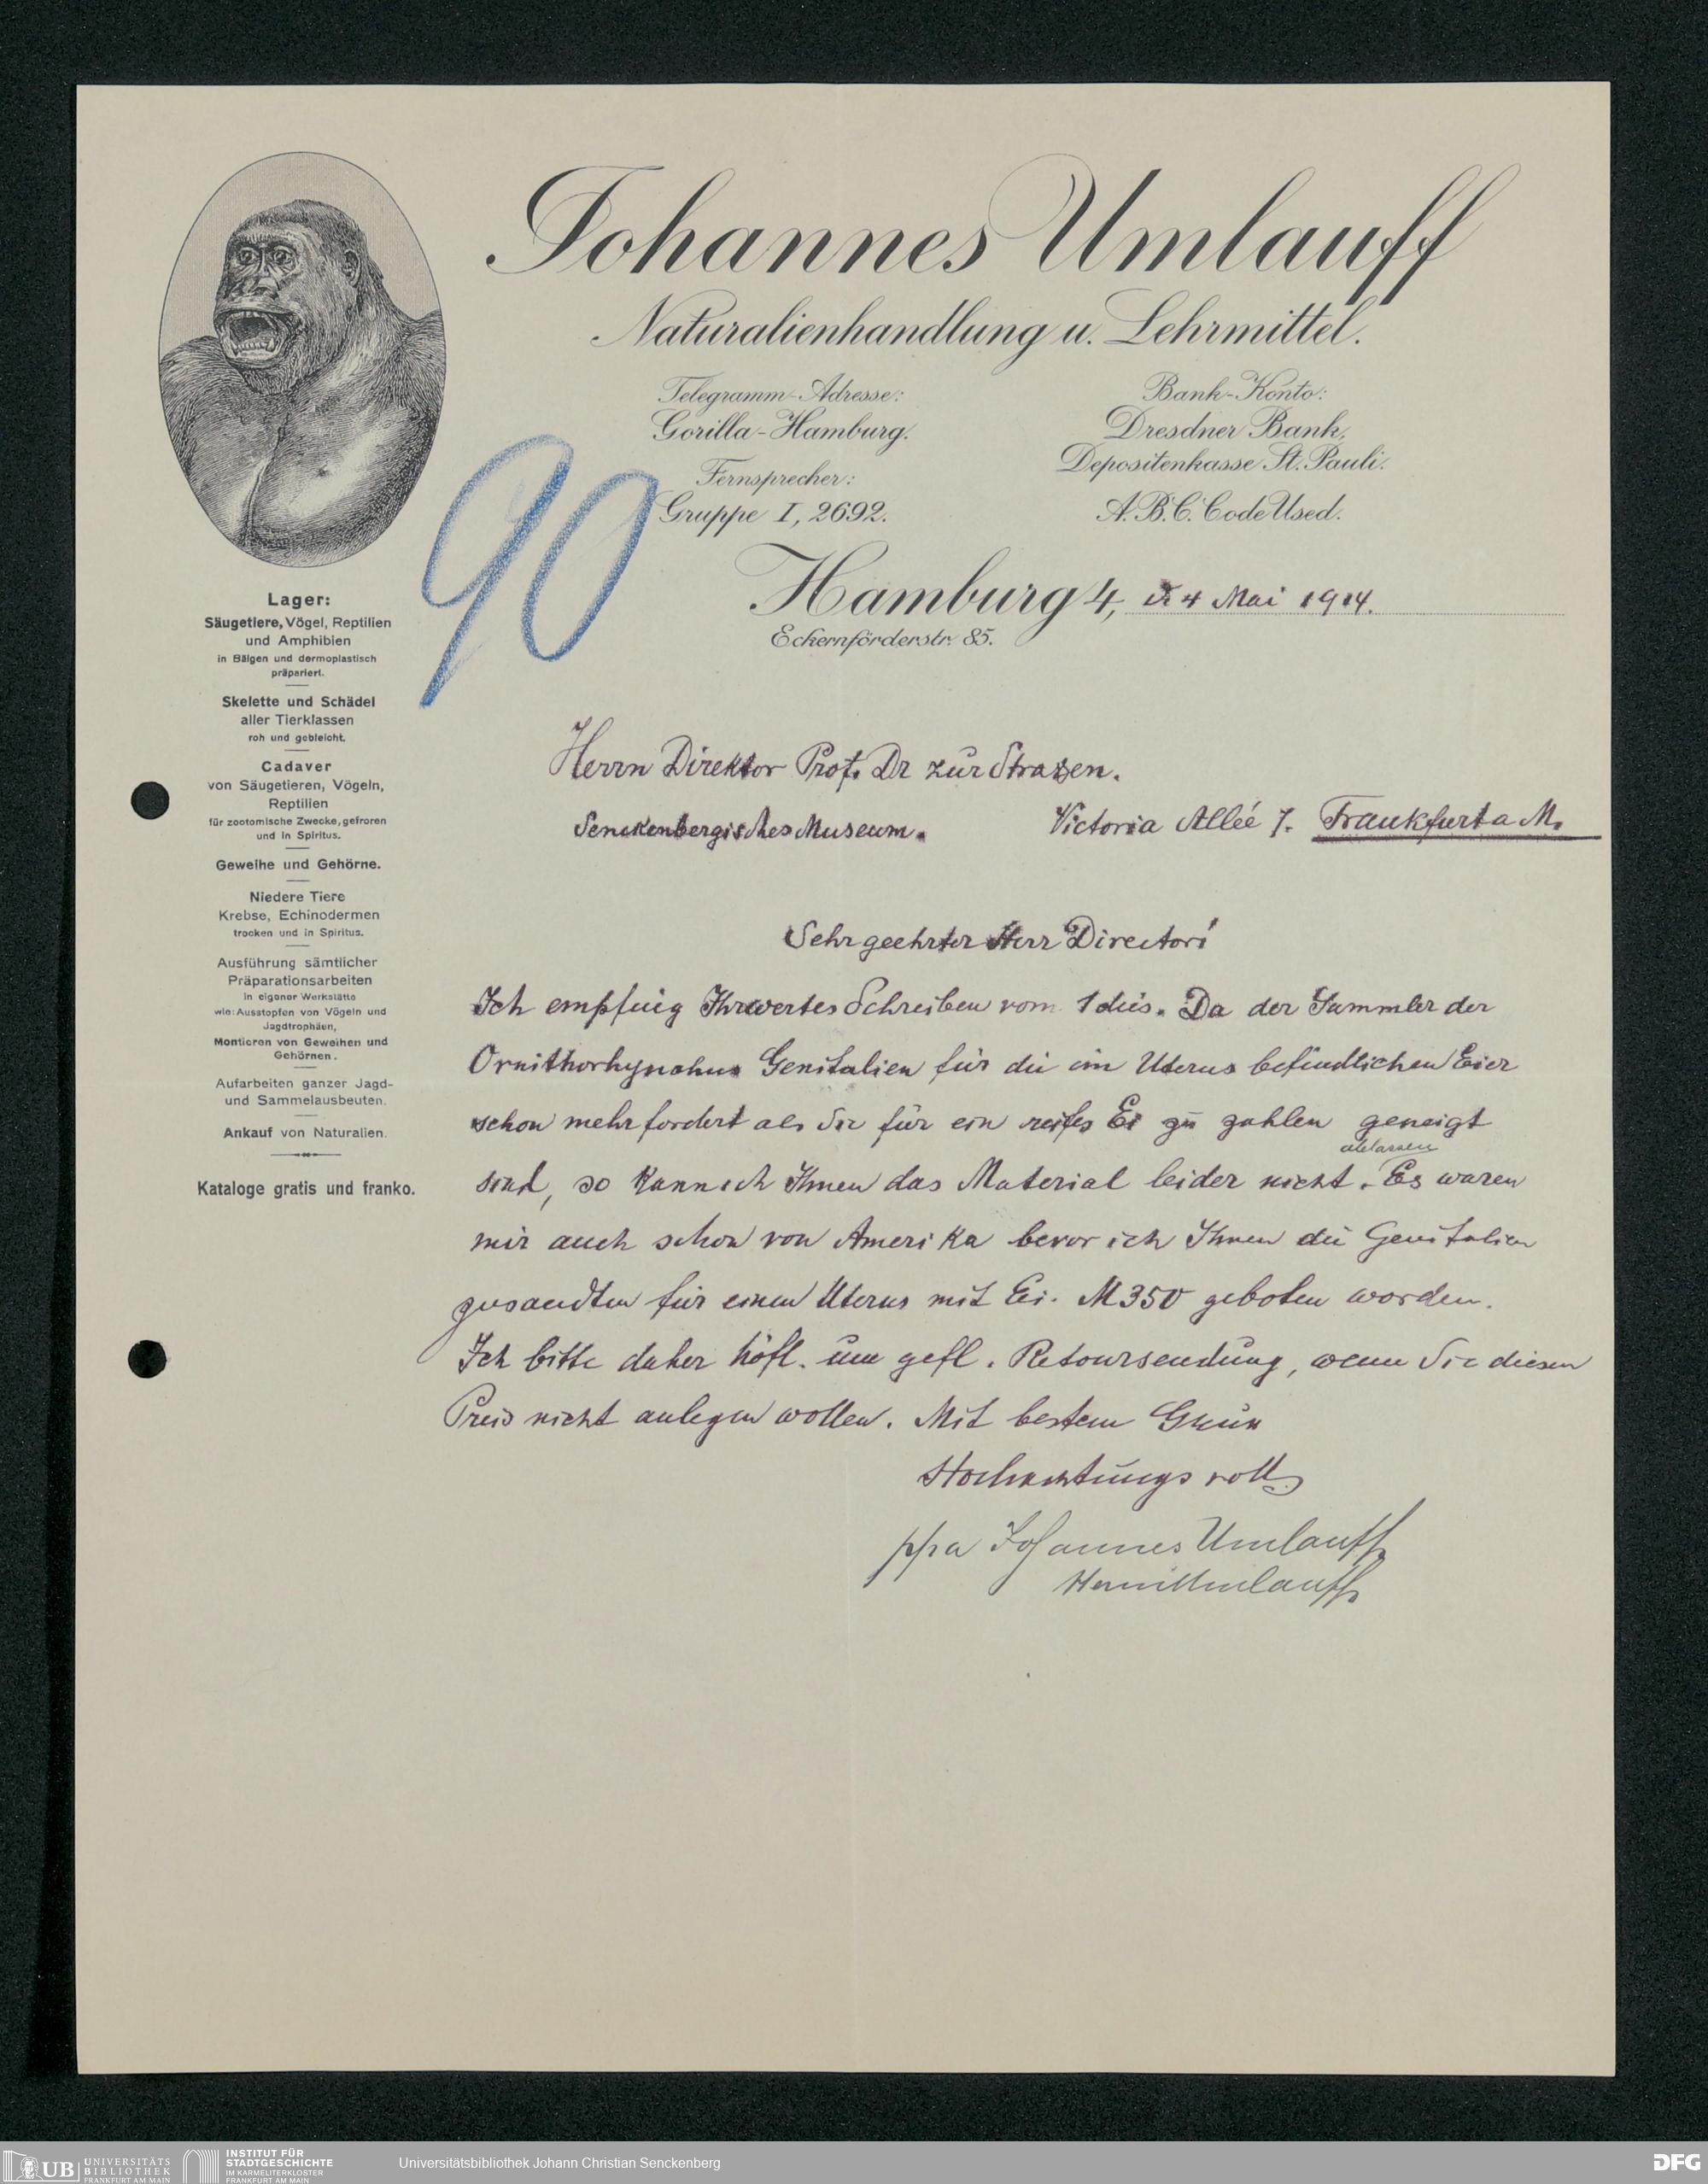 Johannes Umlauff
Naturalienhandlung u. Lehrmittel.
Telegramm-Adresse:
Gorilla-Hamburg.
Fernsprecher:
Gruppe I, 2692.
Bank-Konto:
Dresdner Bank,
Depositenkasse St. Pauli.
A.B.C. Code Used.
90
Hamburg 4, d. 4 Mai 1914.
Eckernförderstr. 85.
Lager:
Säugetiere, Vögel, Reptilien
und Amphibien
in Bälgen und dermoplastisch
präpariert.
Skelette und Schädel
aller Tierklassen
roh und gebleicht.
Cadaver
von Säugetieren, Vögeln,
Reptilien
für zootomische Zwecke, gefroren
und in Spiritus.
Geweihe und Gehörne.
Niedere Tiere
Krebse, Echinodermen
trocken und in Spiritus.
Ausführung sämtlicher
Präparationsarbeiten
in eigener Werkstätte
wie: Ausstopfen von Vögeln und
Jagdtrophäen,
Montieren von Geweihen und
Gehörnen.
Aufarbeiten ganzer Jagd-
und Sammelausbeuten.
Ankauf von Naturalien.
Kataloge gratis und franko.
Herrn Direktor Prof. Dr zur Straßen.
Senckenbergisches Museum. Victoria Alleé 7. Frankfurt a M.
Sehr geehrter Herr Director!
Ich empfing Ihr wertes Schreiben vom 1 dies. Da der Sammler der
Ornithorhynchus Genitalien für die im Uterus befindlichen Eier
schon mehr fordert als Sie für ein reifes Ei zu zahlen geneigt
sind, so kann ich Ihnen das Material leider nicht ablassen. Es waren
mir auch schon von Amerika bevor ich Ihnen die Genitalien
zusandten für einen Uterus mit Ei. M 350 geboten worden.
Ich bitte daher höfl. um gefl. Retoursendung, wenn Sie diesen
Preis nicht anlegen wollen. Mit bestem Gruß
Hochachtungsvoll
ppa Johannes Umlauff
Umlauff
UB UNIVERSITÄTS
BIBLIOTHEK
FRANKFURT AM MAIN
INSTITUT FÜR
STADTGESCHICHTE
IM KARMELITERKLOSTER
FRANKFURT AM MAIN
Universitätsbibliothek Johann Christian Senckenberg
DFG